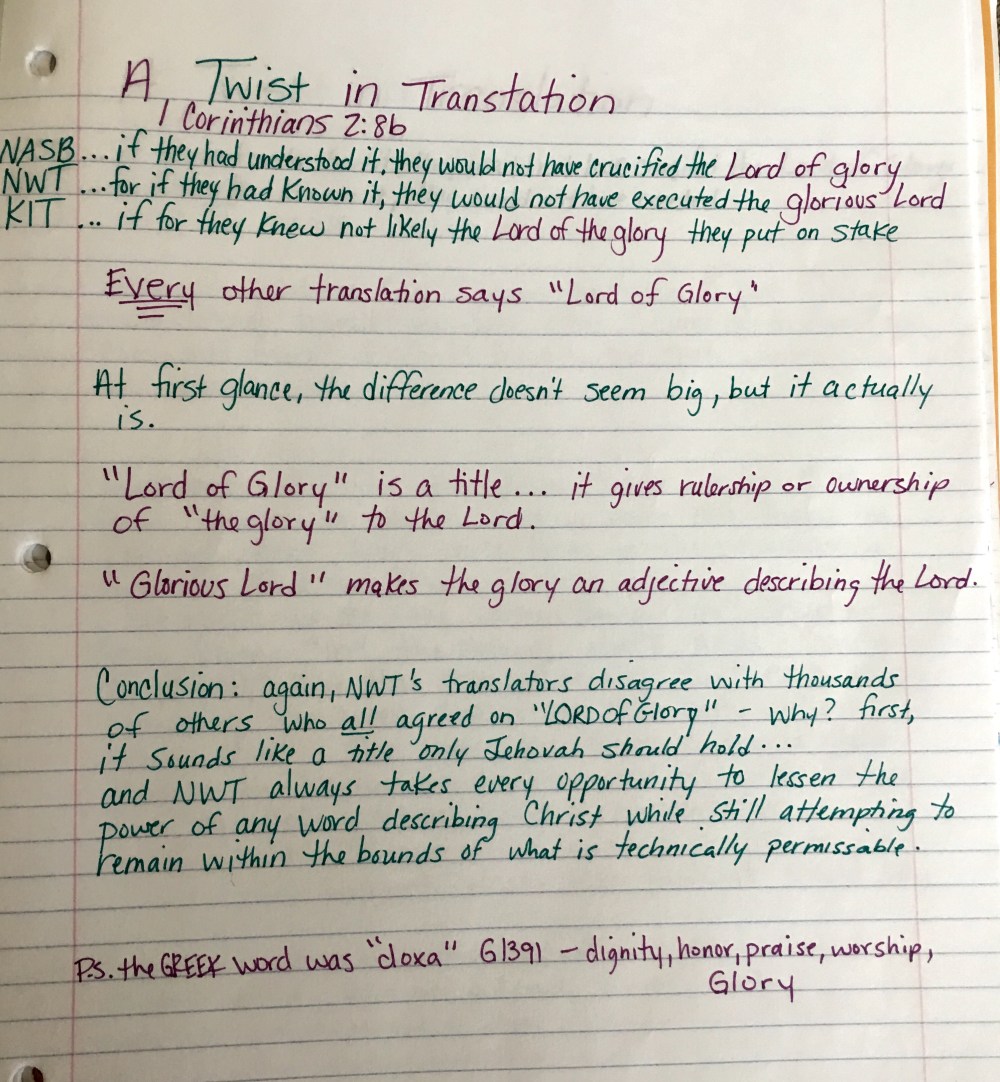 A Twist in Transtation
1 Corinthians 2:8b
NASB...if they had understood it, they would not have crucified the Lord of glory
NWT ...for if they had Known it, they would not have executed the glorious Lord
KIT ... if for they knew not likely the Lord of the glory they put on stake
Every other translation says "Lord of Glory"
At first glance, the difference doesn't seem big, but it actually
is.
"Lord of Glory" is a title... it gives rulership or ownership
of "the glory" to the Lord.
"Glorious Lord" makes the glory an adjective describing the Lord.
Conclusion: again, NWT's translators disagree with thousands
of others who all agreed on "LORD of Glory" - Why? first,
it sounds like a title only Jehovah should hold...
and NWT always takes every opportunity to lessen the
power of any word describing Christ while still attempting to
remain within the bounds of what is technically permissable.
P.s. the GREEK word was "doxa" G1391 - dignity, honor, praise, worship,
Glory